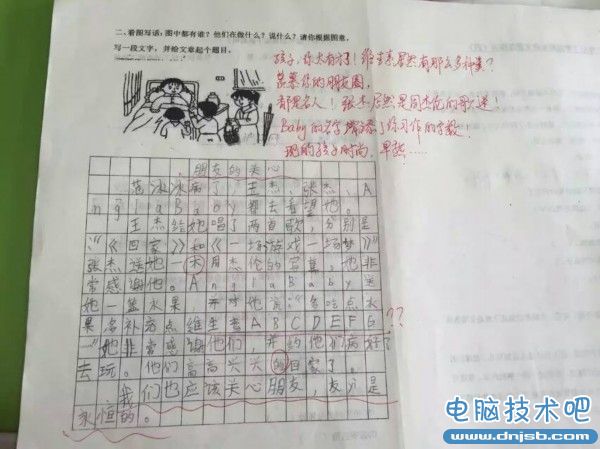 二、看图写话:图中都有谁?他们在做什么?说什么?请你根据图意,
写一段文字,并给文章起个题目。
孩子,你太有才了!维生素居然有那么多种类?
羡慕你的朋友圈,
都是名人!张杰居然是周杰伦的歌迷!
Baby的名字 了你习作的字数!
现的孩子时尚,早熟……
朋友的关心
范冰冰病了,王杰、张杰、A
ngelaBaby都去看望她。
王杰给她唱了两首歌,分别是
《回家》和《一场游戏一场梦》
张杰送她一本周杰伦的写真,她非
常感谢他。AngelaBaby送
她一篮水果,并对她说:"多吃点水
果多补充点维生素ABCDEFG
"她非常感谢他们,并约他们病好了
去玩。他们高高兴兴的回家了。
我们也应该关心朋友,友谊是
永恒的。
??
电脑技术吧
www.dnjsb.com